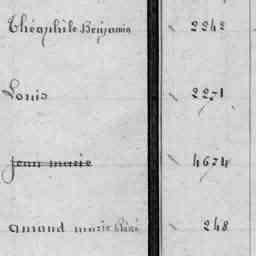 Théophile Benjamin 2242
Louis 2271
Jean marie 4674
amand marie Réné 248